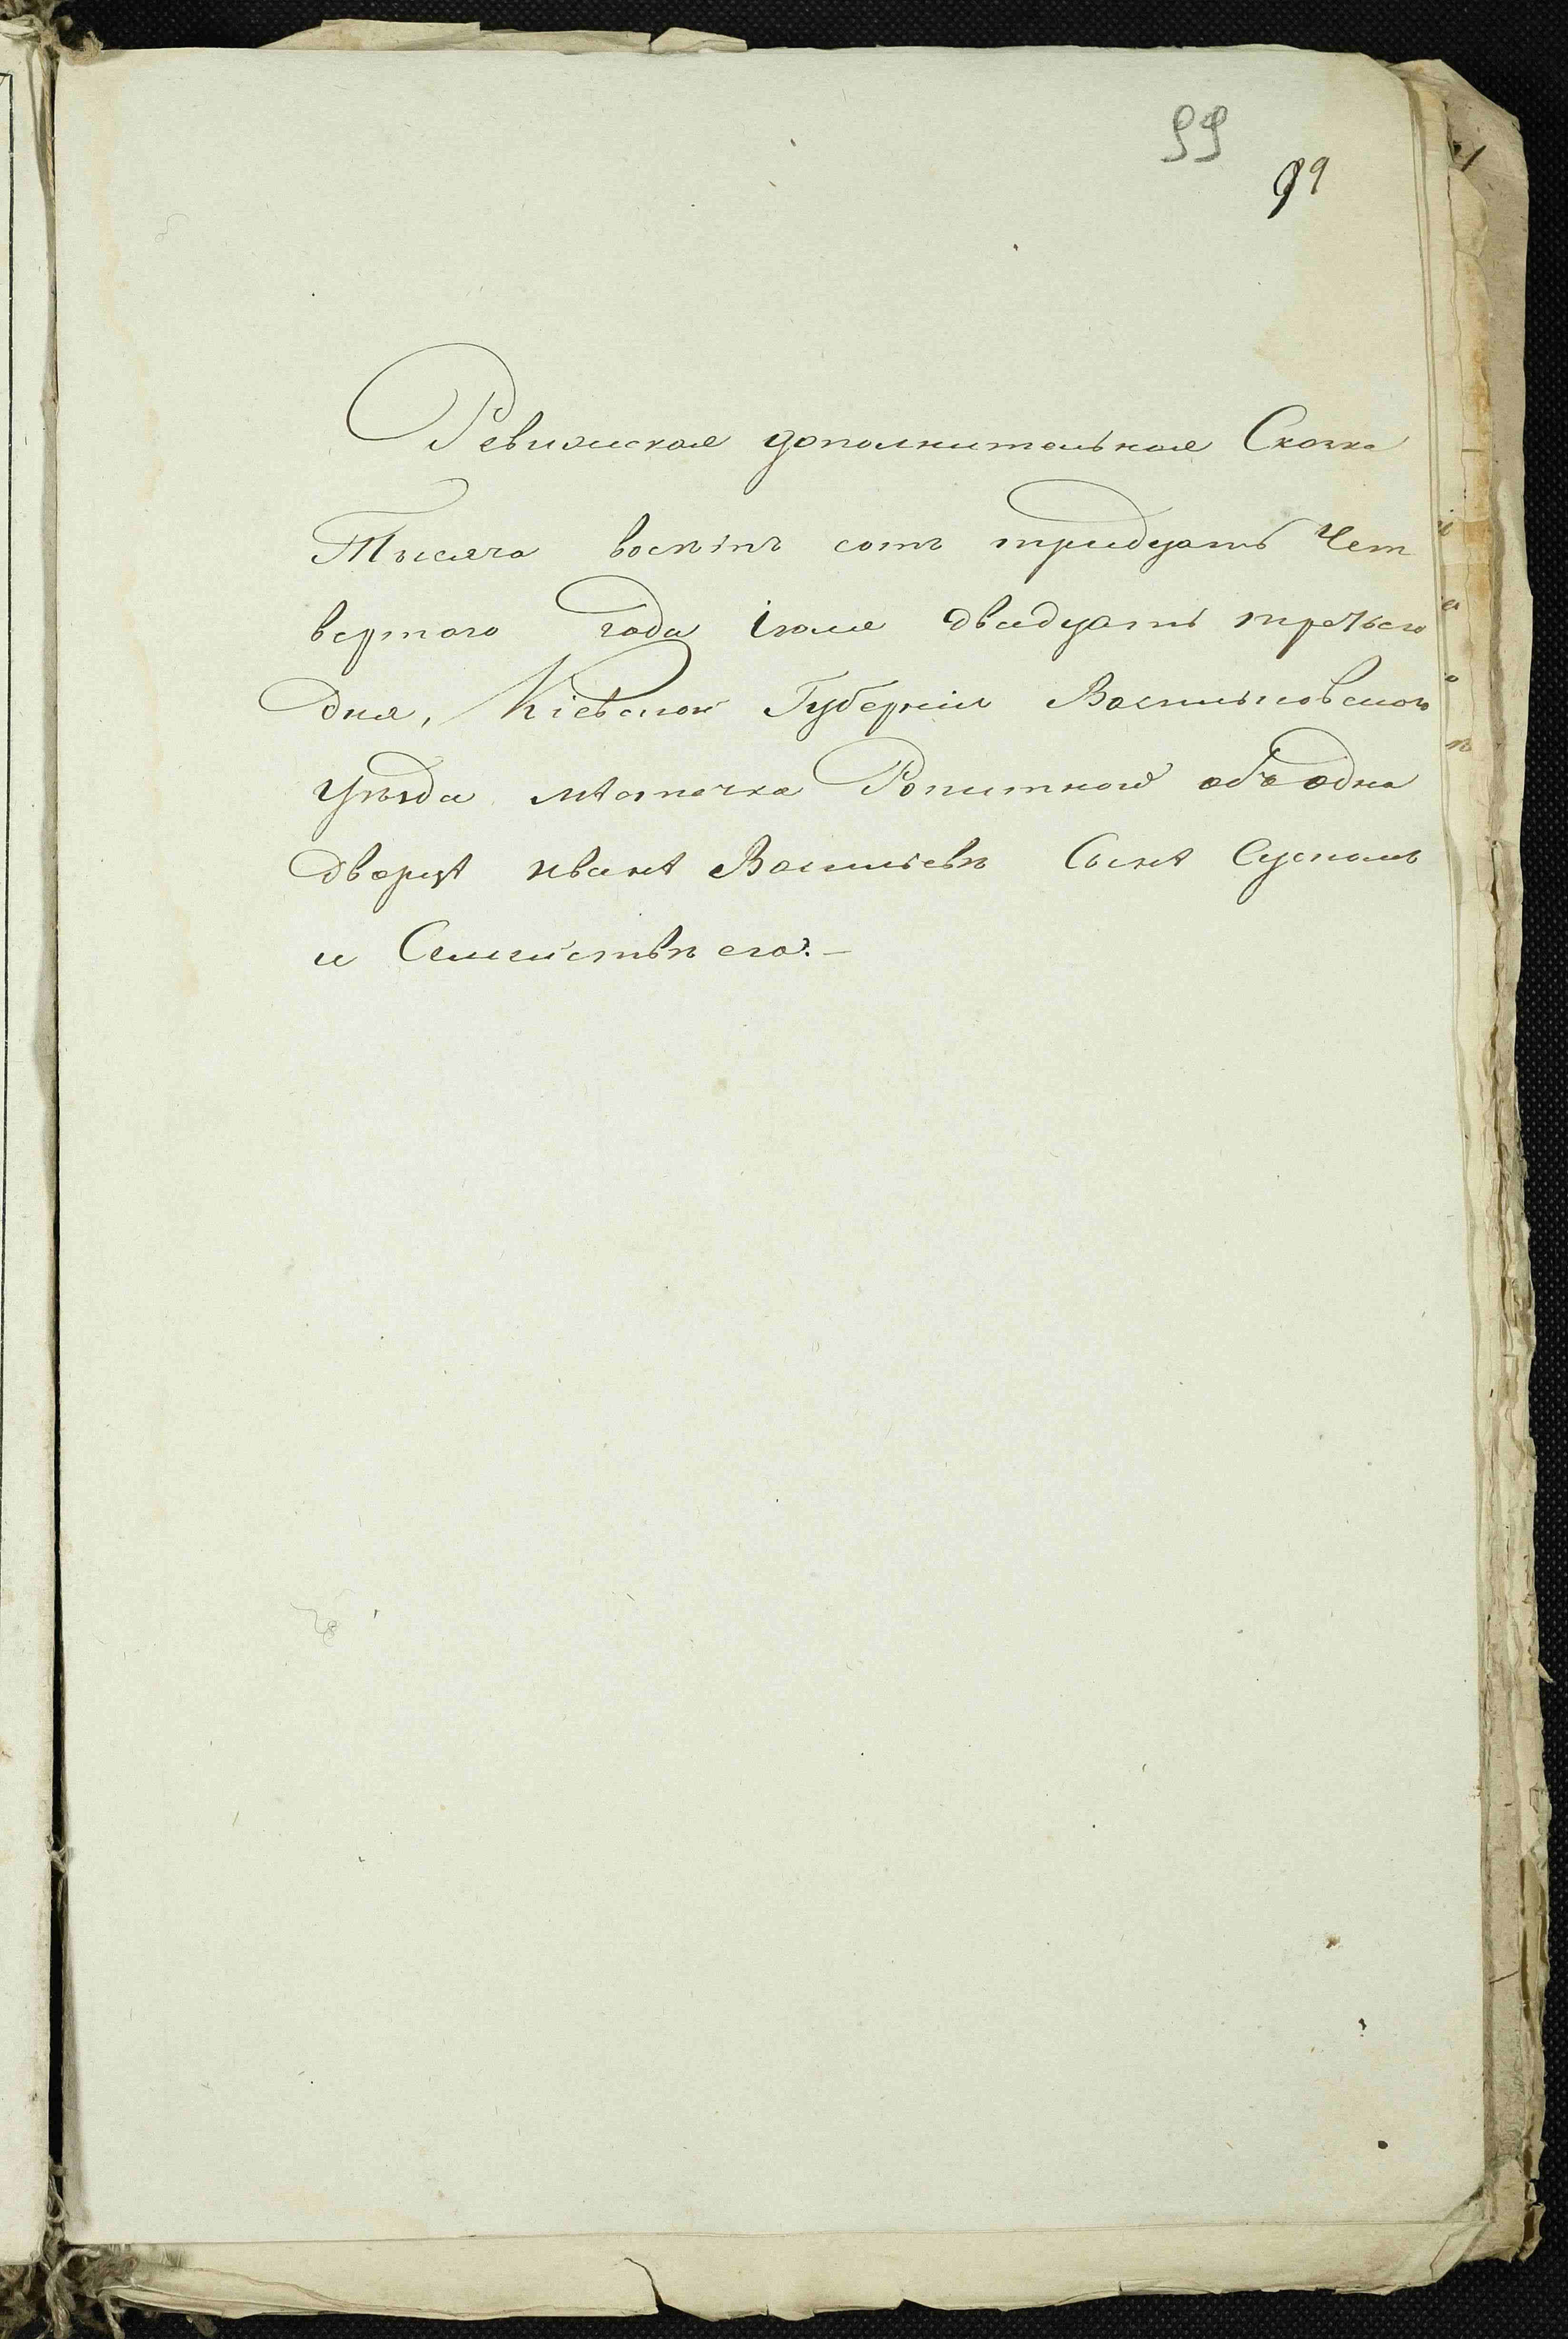 99
99
Ревизиская дополнительная Сказка
Тысяча восѣмъ сотъ тридцать Чет
вертого года іюля двадцать третьего
дня, Кіевской Губерніи Васильковского
уѣзда мѣстечка Рокитной объ одно
дворцѣ иванѣ Васильевѣ Сынѣ
и Семействѣ его.